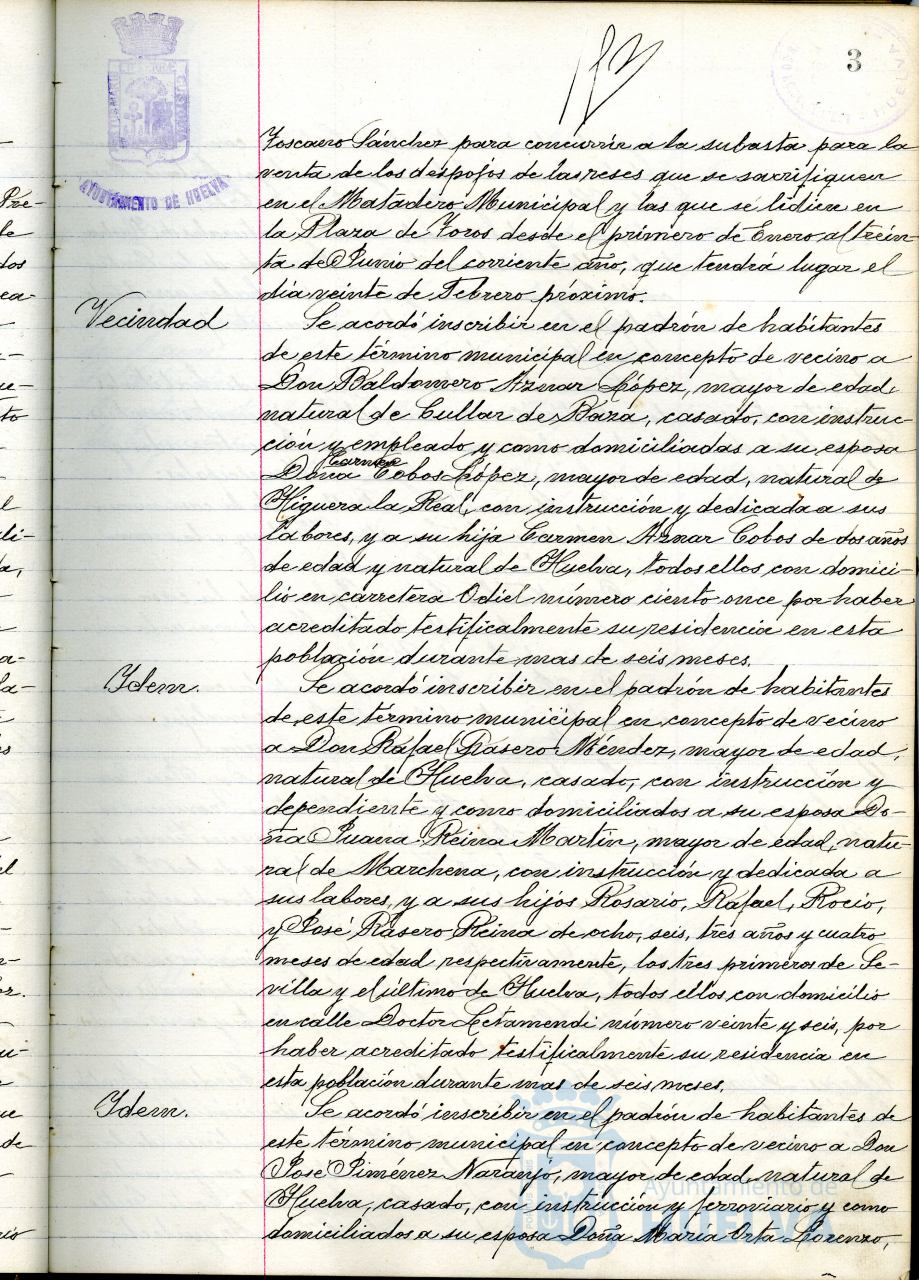 3
AYUNTAMIENTO DE HUELVA
Toscano Sánchez para concurrir a la subasta para la
venta de los despojos de las reses que se sacrifiquen
en el Matadero Municipal y las que se lidien en
la Plaza de Toros desde el primero de Enero al trein-
ta de Junio del corriente año, que tendrá lugar el
día veinte de Febrero próximo.
Vecindad
Se acordó inscribir en el padrón de habitantes
de este término municipal en concepto de vecino a
Don Baldomero Aznar López, mayor de edad,
natural de Cullar de Baza, casado, con instruc-
ción y empleado y como domiciliadas a su esposa
Doña Carmen Cobos López, mayor de edad, natural de
Higuera la Real, con instrucción y dedicada a sus
labores, y a su hija Carmen Aznar Cobos de dos años
de edad y natural de Huelva, todos ellos con domici-
lio en carretera Odiel número ciento once por haber
acreditado testificalmente su residencia en esta
población durante mas de seis meses.
Idem.
Se acordó inscribir en el padrón de habitantes
de este término municipal en concepto de vecino
a Don Rafael Rasero Méndez, mayor de edad,
natural de Huelva, casado, con instrucción y
dependiente y como domiciliados a su esposa Do-
ña Juana Reina Martín, mayor de edad, natu-
ral de Marchena, con instrucción y dedicada a
sus labores, y a sus hijos Rosario, Rafael, Rocio,
y José Rasero Reina de ocho, seis, tres años y cuatro
meses de edad respectivamente, los tres primeros de Se-
villa y el último de Huelva, todos ellos con domicilio
en calle Doctor Letamendi número veinte y seis, por
haber acreditado testificalmente su residencia en
esta población durante mas de seis meses.
Idem.
Se acordó inscribir en el padrón de habitantes de
este término municipal en concepto de vecino a Don
José Jiménez Naranjo, mayor de edad, natural de
Huelva, casado, con instrucción y ferroviario y como
domiciliados a su esposa Doña María Orta Lorenzo,
Ayuntamiento de
HUELVA